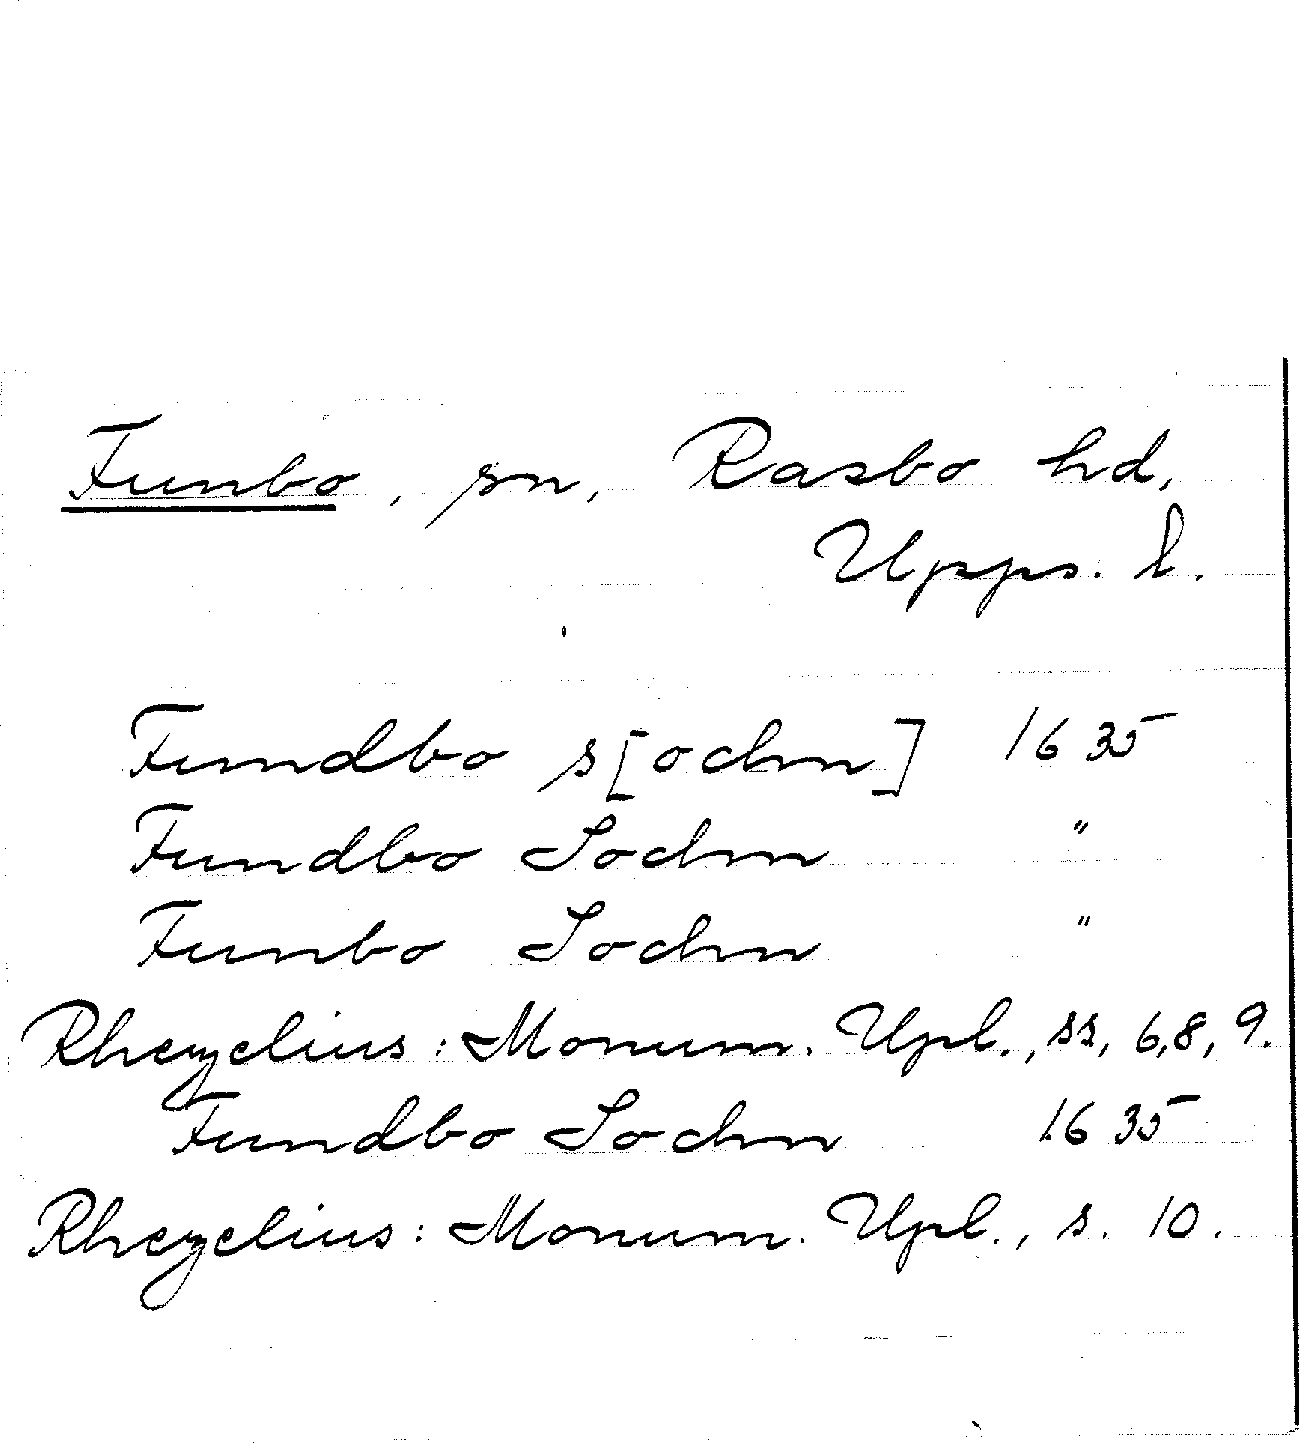 Funbo, sn, Rasbo hd,
Upps. l.
Fundbo s[ochn] 1635
Fundbo Sochn "
Funbo Sochn "
Rhezelius: Monum. Upl., ss, 6,8, 9.
Fundbo Sochn 1635
Rhezelius: Monum. Upl., s. 10.